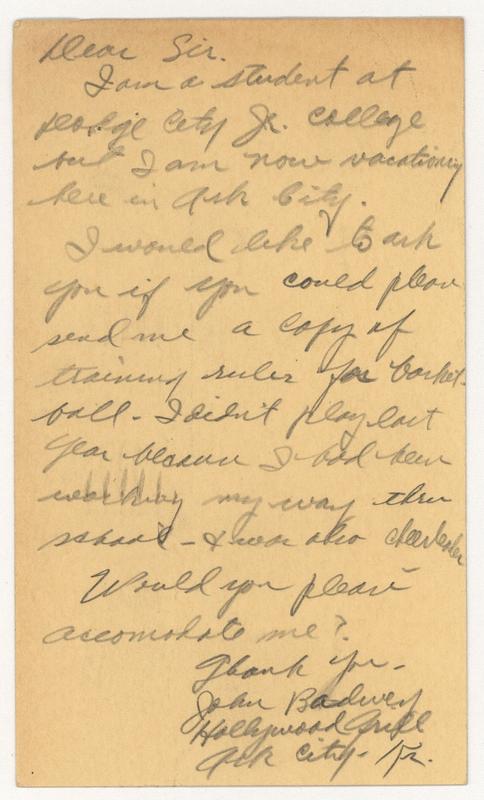 Dear Sir.
I am a student at
Dodge City Jr. College
but I am now vacationing
here in Ark City.
I would like to ask
you if you could please
send me a copy of
training rules for basket-
ball - I didn't play last
year because I had been
working my way thru
school - I was also cheerleader
Would you please
accomodate me?
Thank You -
John
Hollywood Grill
Ark City - Kr.